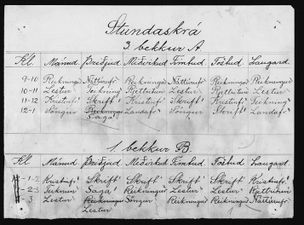 Stundaskrá
3 bekkur A
Kl. Mánud Þriðjud Miðvikud Fimtud Föstud Laugard
9-10 Reikningur Náttúrufr Reikningur Náttúrufr Reikningur Reikningur
10-11 Lestur Teikning Rjettritun Lestur Rjettritun Lestur
11-12 Kristinfr Skrift Kristinfr Skrift Kristinfr Teikning
12-1 Söngur Saga Landafr Söngur Landafr
1 bekkur B
Kl. Mánud Þriðjud Miðvikud Fimtud Föstud Laugard
1-2 Kristinfr Skrift Skrift Kristinfr Skrift Kristinfr
2-3 Saga Reikningur Lestur Lestur
3 Lestur Reikningur Söngur Reikningur Reikningur Náttúrufr
Lestur